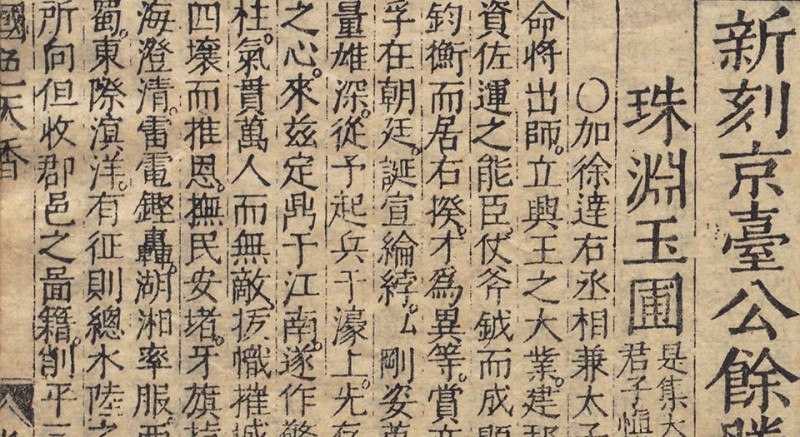 新刻京臺公餘
珠淵玉圃
是集大
君子慎
〇加徐達右丞相兼太子
命將出師。立興王之大業。建邦
資佐運之能臣。仗斧鉞而成
鈞衡而居右揆。才爲異等。賞
孚在朝廷。誕宣綸綍。厶剛安萬
量雄深。從予起兵于濠上。先存
之心。來茲定鼎于江南。遂作擎
柱。氣貫萬人而無敵。㧞幟摧城
四壤而推恩。撫民安堵。牙旗
海澄清。雷電鏗轟。湖湘率服。西
蜀。東際滇洋。有征則總水陸之
所向但收郡邑之啚籍。削平
國色天香